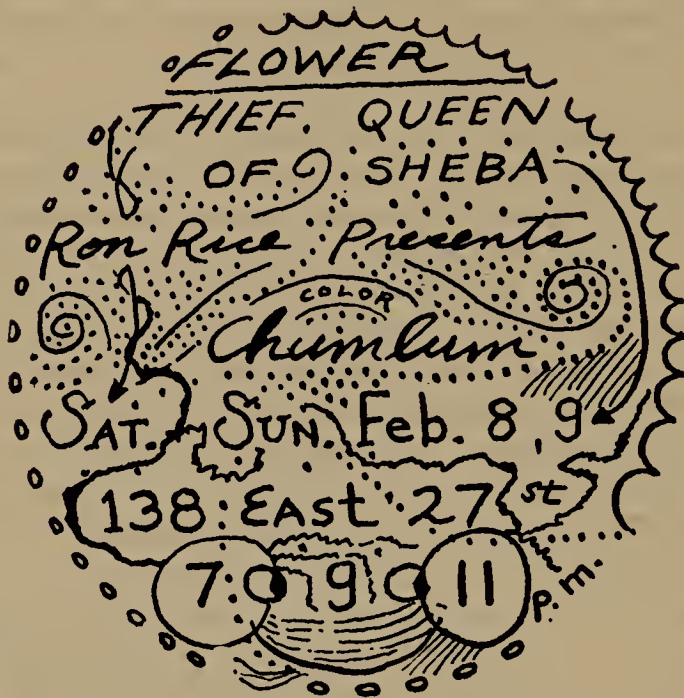 FLOWER
THIEF. QUEEN
OF SHEBA
Ron Rice Presents
COLOR
Chumlum
SAT. SUN. Feb. 8, 9
138 EAST 27 st
7 9 11 p.m.